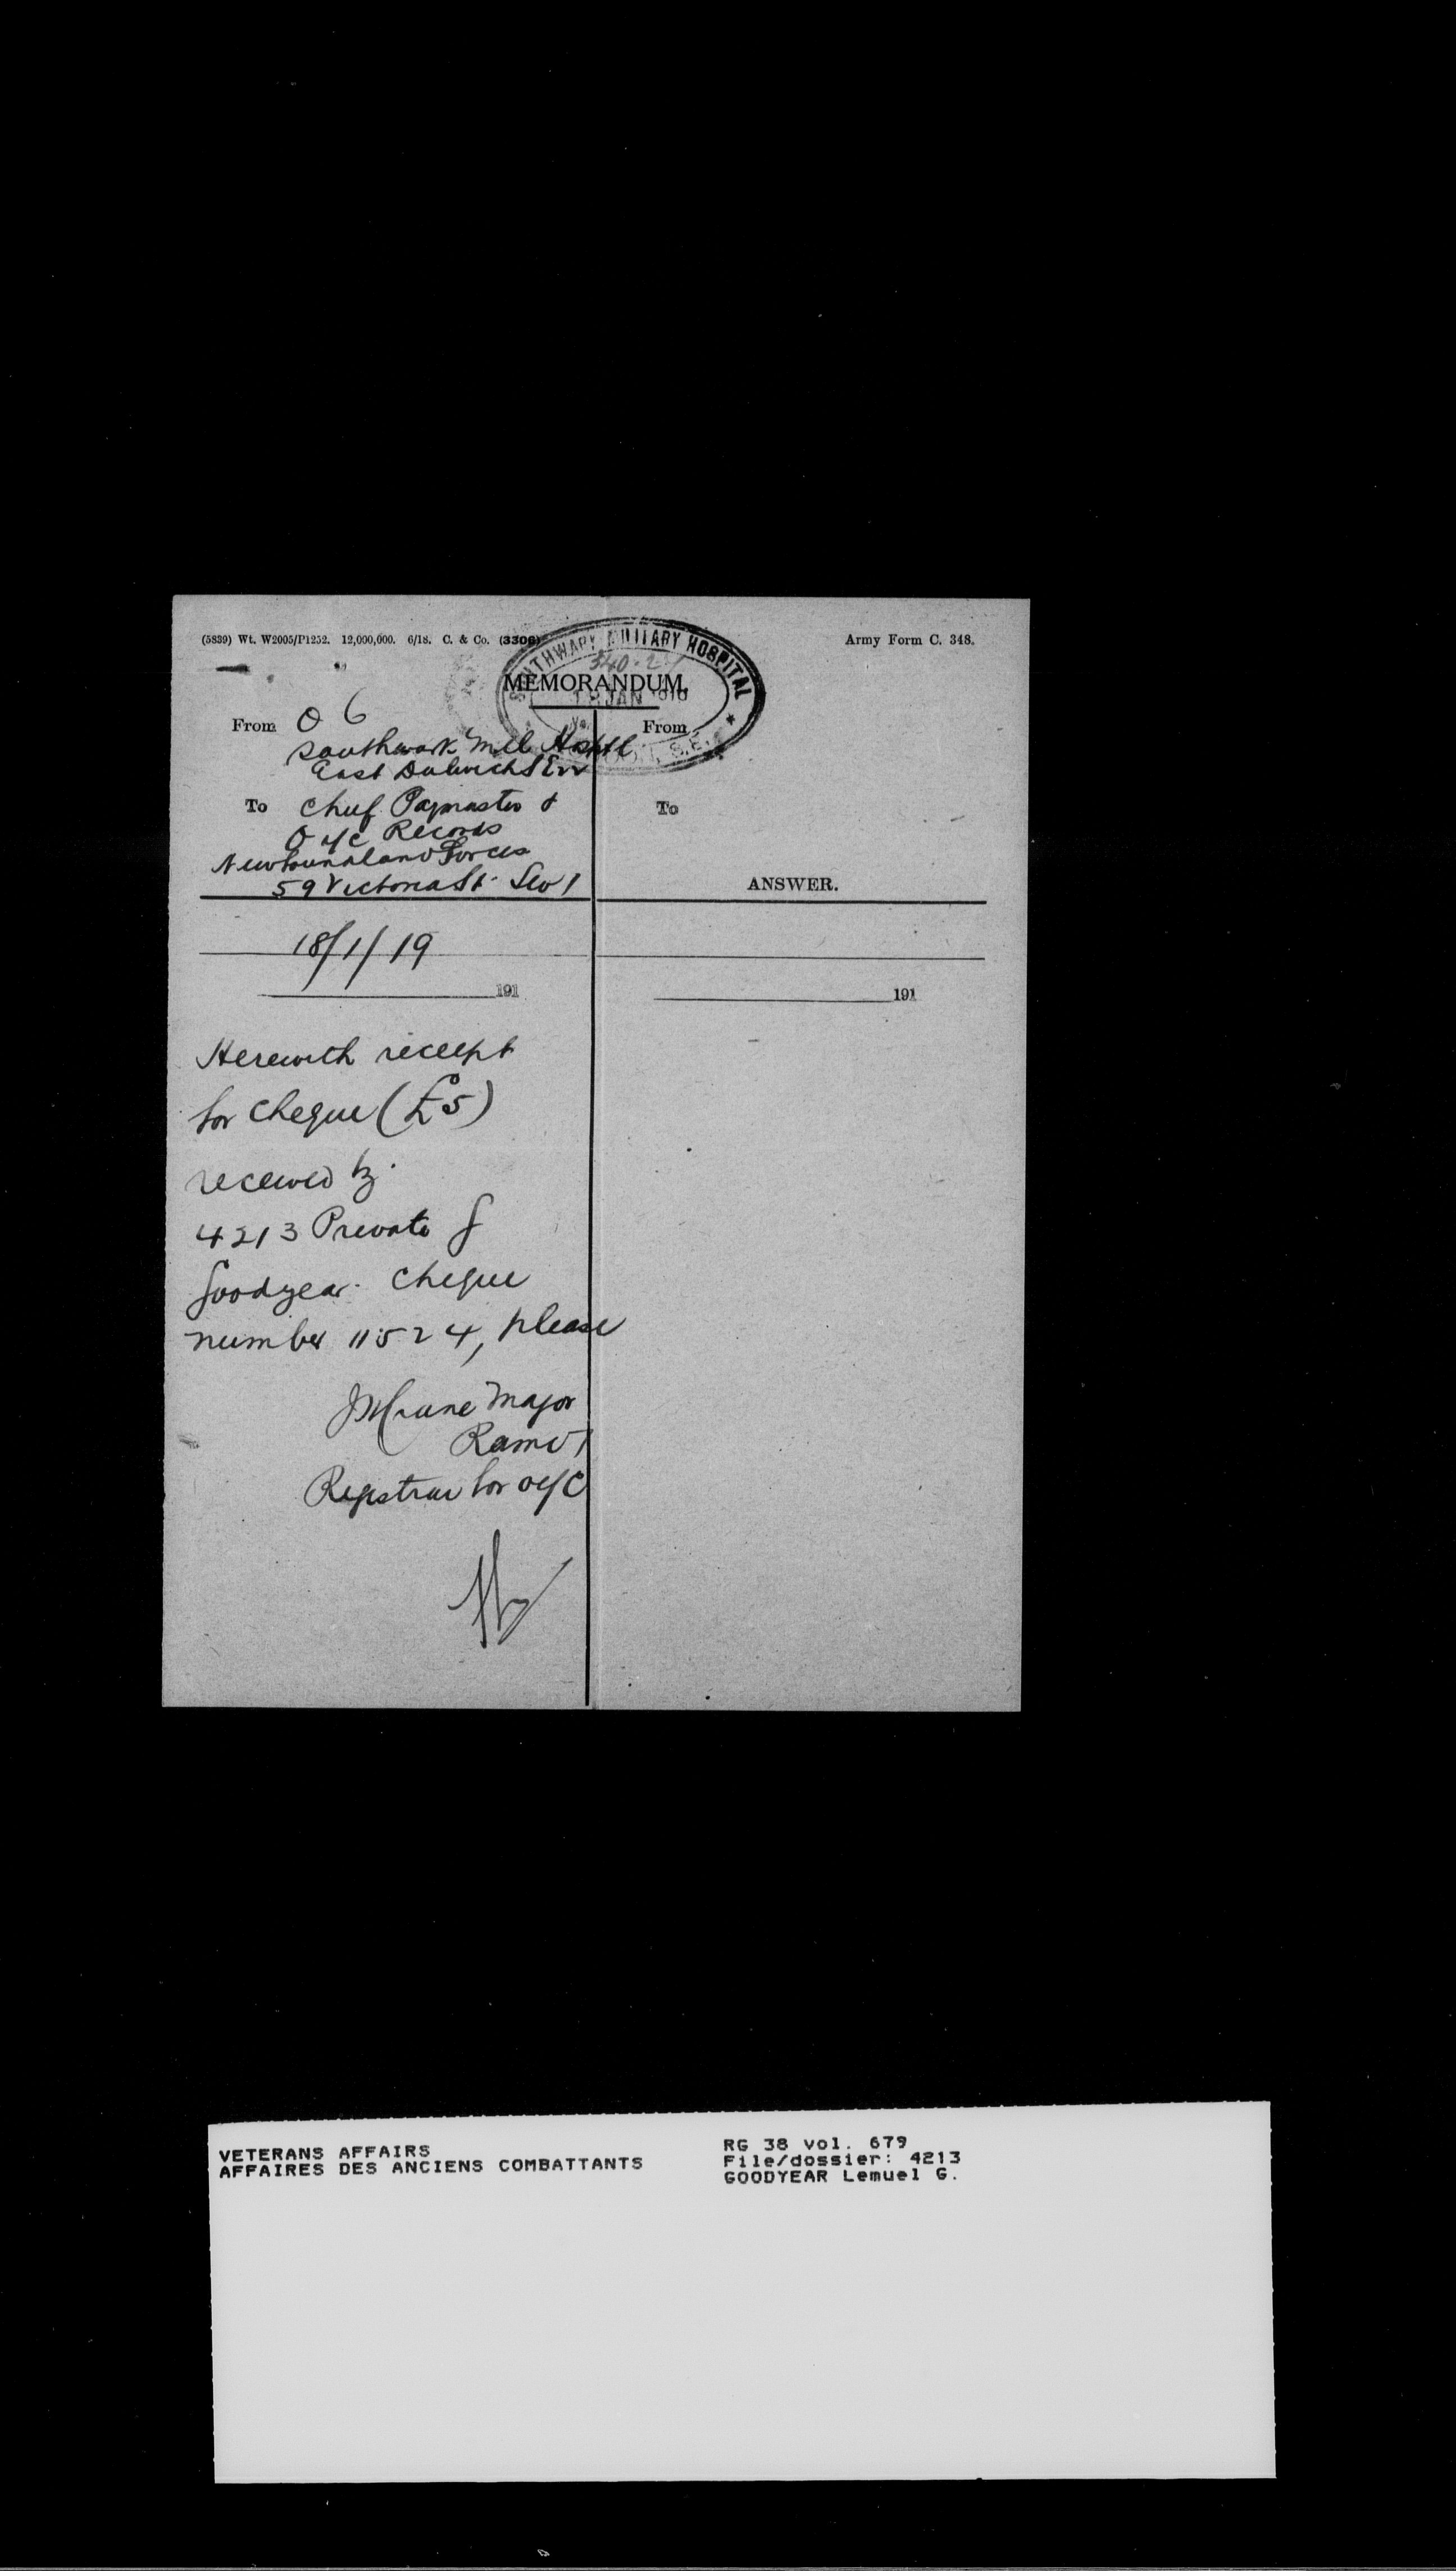 (5839) Wt. W2005/P1252. 12,000,000. 6/18. C. & Co. (3306)
Army Form C. 348.
SOUTHWARK MILITARY HOSPITAL
MEMORANDUM.
18 JAN 1919
From O C
Southwark Mil Hosptl
East Dulwich S E 22
To Chief Paymaster &
O i/c Records
Newfoundland Forces
59 Victoria St. SW1
From
To
ANSWER.
18/1/19
191
191
Herewith receipt
for cheque (£5)
received by
4213 Private G
Goodyear. Cheque
number 11524, please
Major
RAMC
Registrar for O i/C
VETERANS AFFAIRS
AFFAIRES DES ANCIENS COMBATTANTS
RG 38 vol. 679
File/dossier: 4213
GOODYEAR Lemuel G.